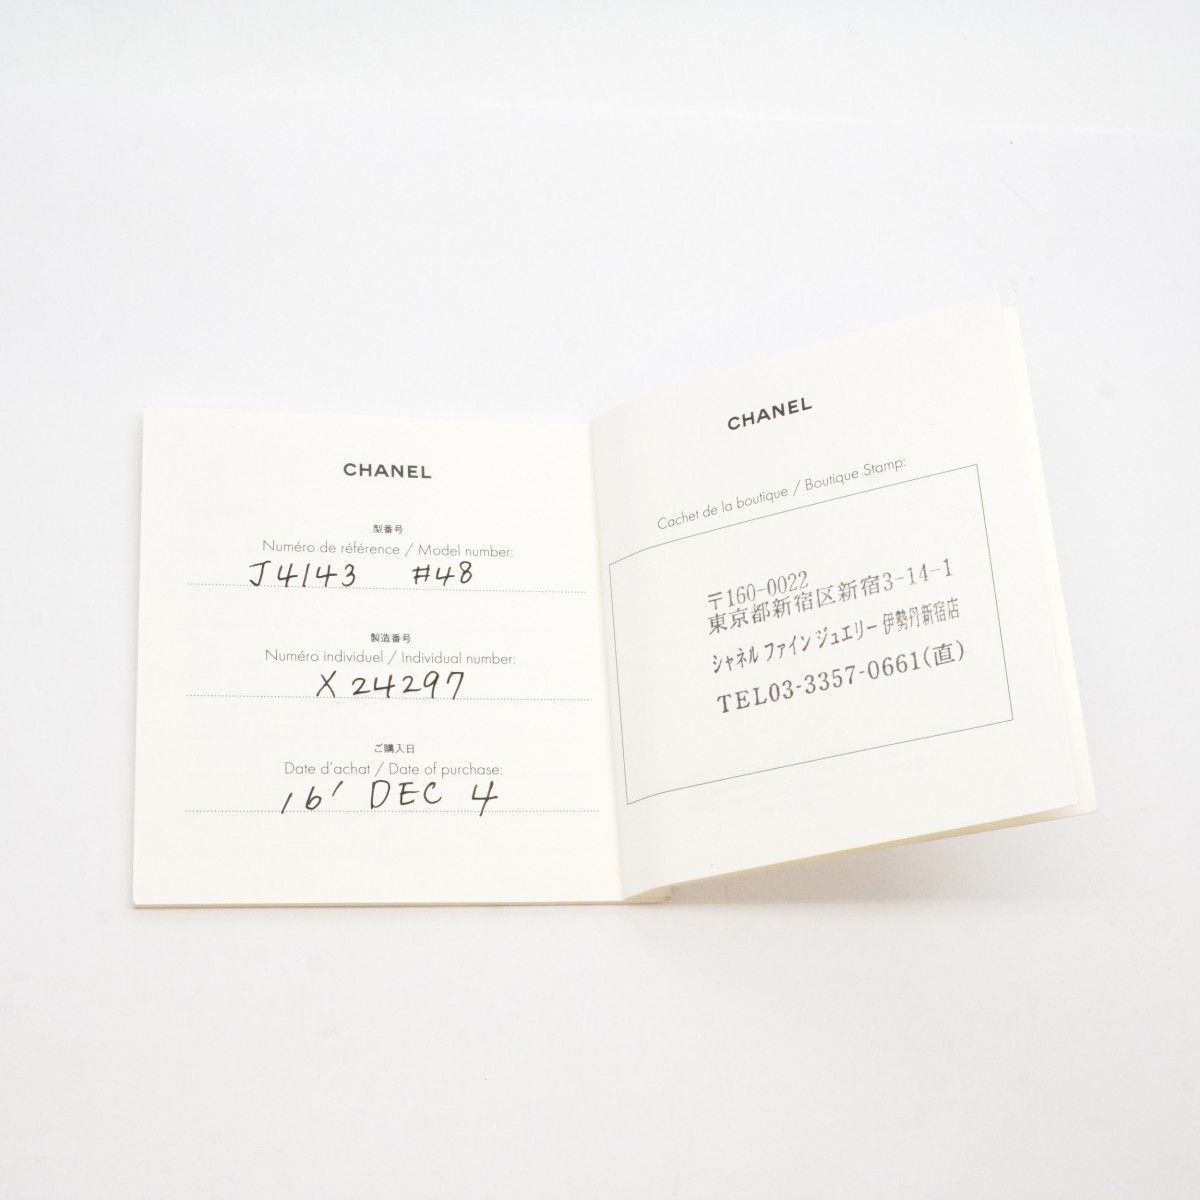 CHANEL
型番号
Numéro de référence / Model number:
J4143 #48
製造番号
Numéro individuel / Individual number:
X 24297
ご購入日
Date d'achat / Date of purchase:
16' DEC 4
CHANEL
Cachet de la boutique / Boutique Stamp:
〒160-0022
東京都新宿区新宿3-14-1
シャネル ファイン ジュエリー 伊勢丹新宿店
TEL03-3357-0661(直)